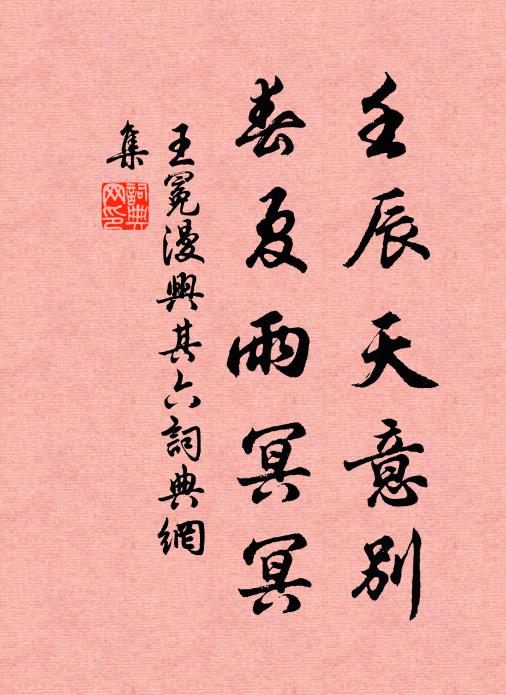 壬辰天意別
春夏雨冥冥
王冕漫興其六詞典網
集
詞典
网印